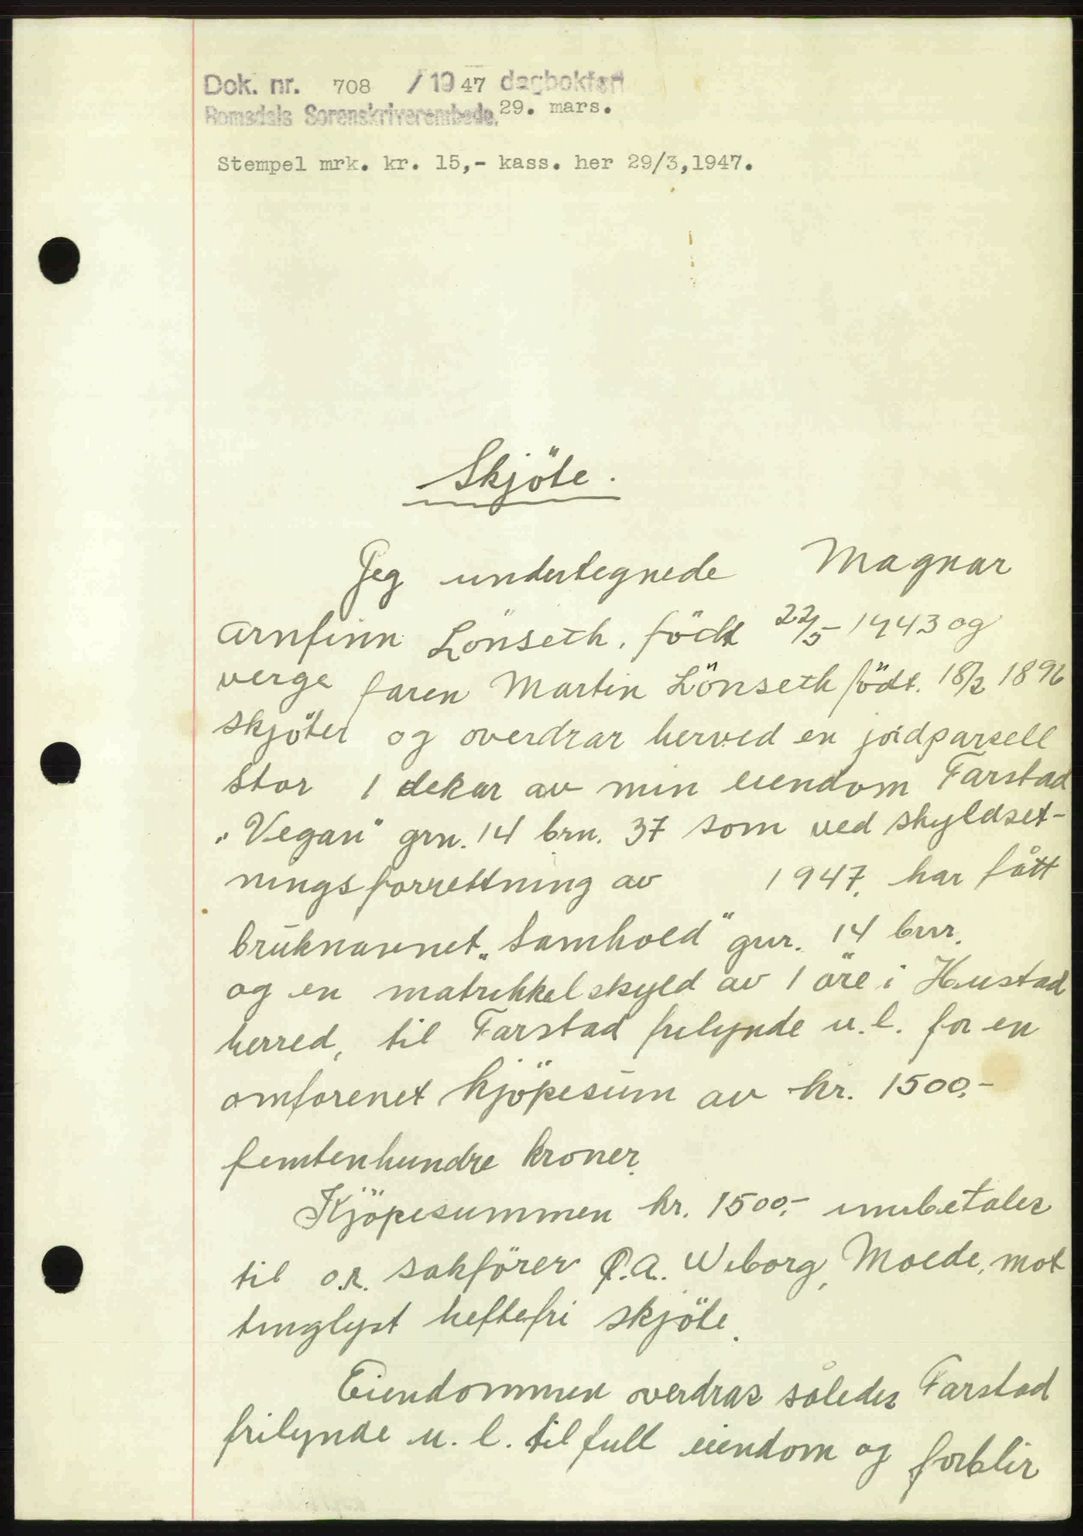 Dok. nr. 708 / 1947 dagbokført
Romsdals Sorenskriverembede. 29. mars.
Stempel mrk. kr. 15,- kass. her 29/3,1947.
Skjöte.
Jeg undertegnede Magnar
Arnfinn Lönseth, född 22/5-1943 og
verge faren Martin Lönseth födt. 18/2 1896
skjöter og overdrar herved en jordparsell
stor 1 dekar av min eiendom Farstad
„Vegan" grn. 14 brn. 37 som ved skyldset-
ningsforrettning av 1947. har fått
bruknavnet „Samhold" gnr. 14 bnr.
og en matrikkelskyld av 1 öre i Hustad
herred, til Farstad frilynde u.l. for en
omforenet kjöpesum av kr. 1500.-
femtenhundre kroner.
Kjöpesummen kr. 1500.- innbetales
til o.r. sakförer A. Wiborg, Molde, mot
tinglyst heftefri skjöte.
Eiendommen overdras således Farstad
frilynde u. l. til full eiendom og forblir